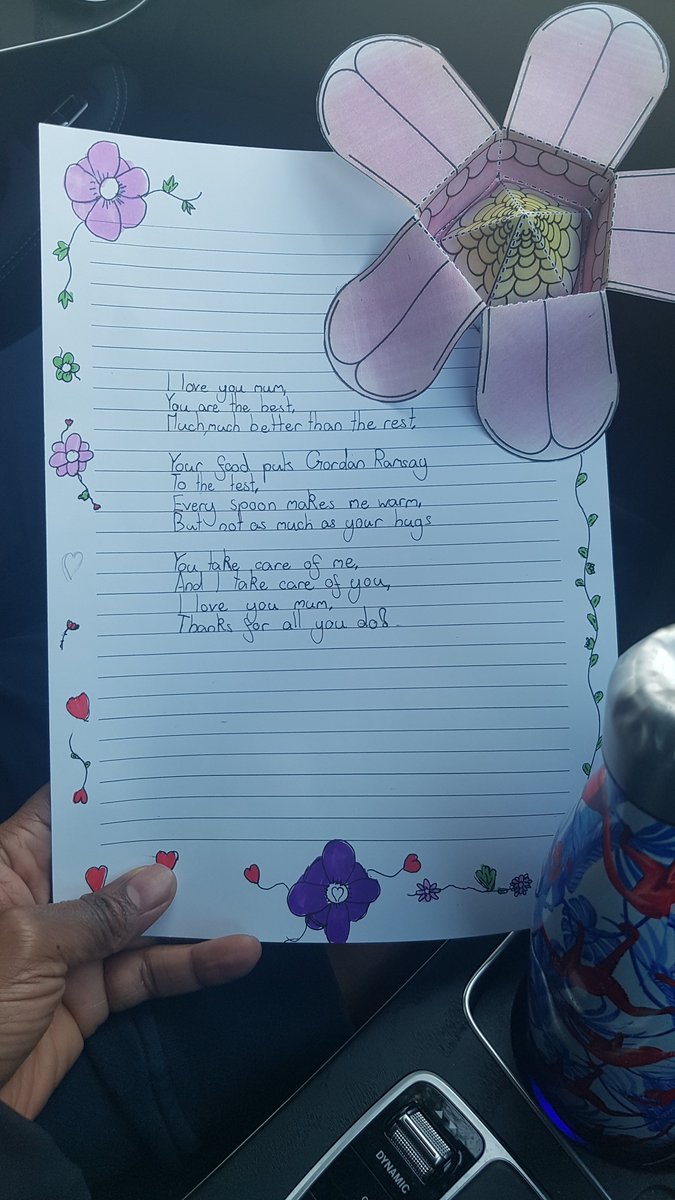 I love you mum,
You are the best,
Much, much better than the rest.
Your food puts Gordan Ramsay
To the test,
Every spoon makes me warm,
But not as much as your hugs
You take care of me,
And I take care of you,
I love you mum,
Thanks for all you do!
DYNAMIC